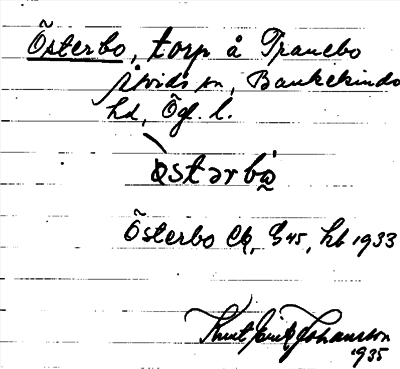 Österbo, torp å Tranebo
Åtvids sn, Bankekinds
hd, Ögl. l.
östərbo
Österbo Ek, 845, hb 1933
Knut Erik Johansson
1935